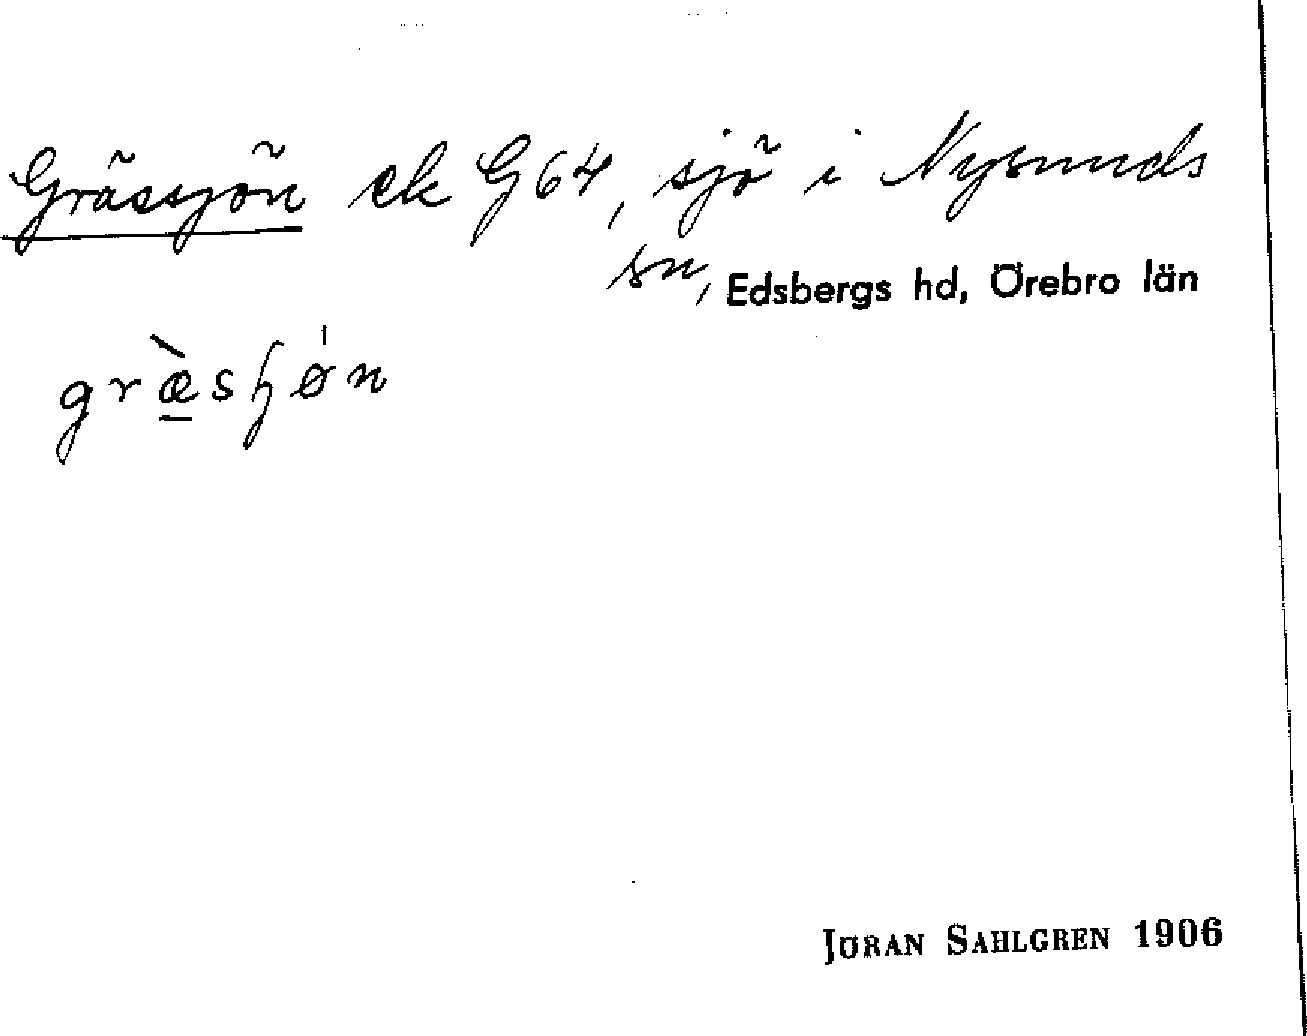 Grässjön ek G64, sjö i Nysunds
sn, Edsbergs hd, Örebro län
græ̠̀sʃø̍n
JÖRAN SAHLGREN 1906